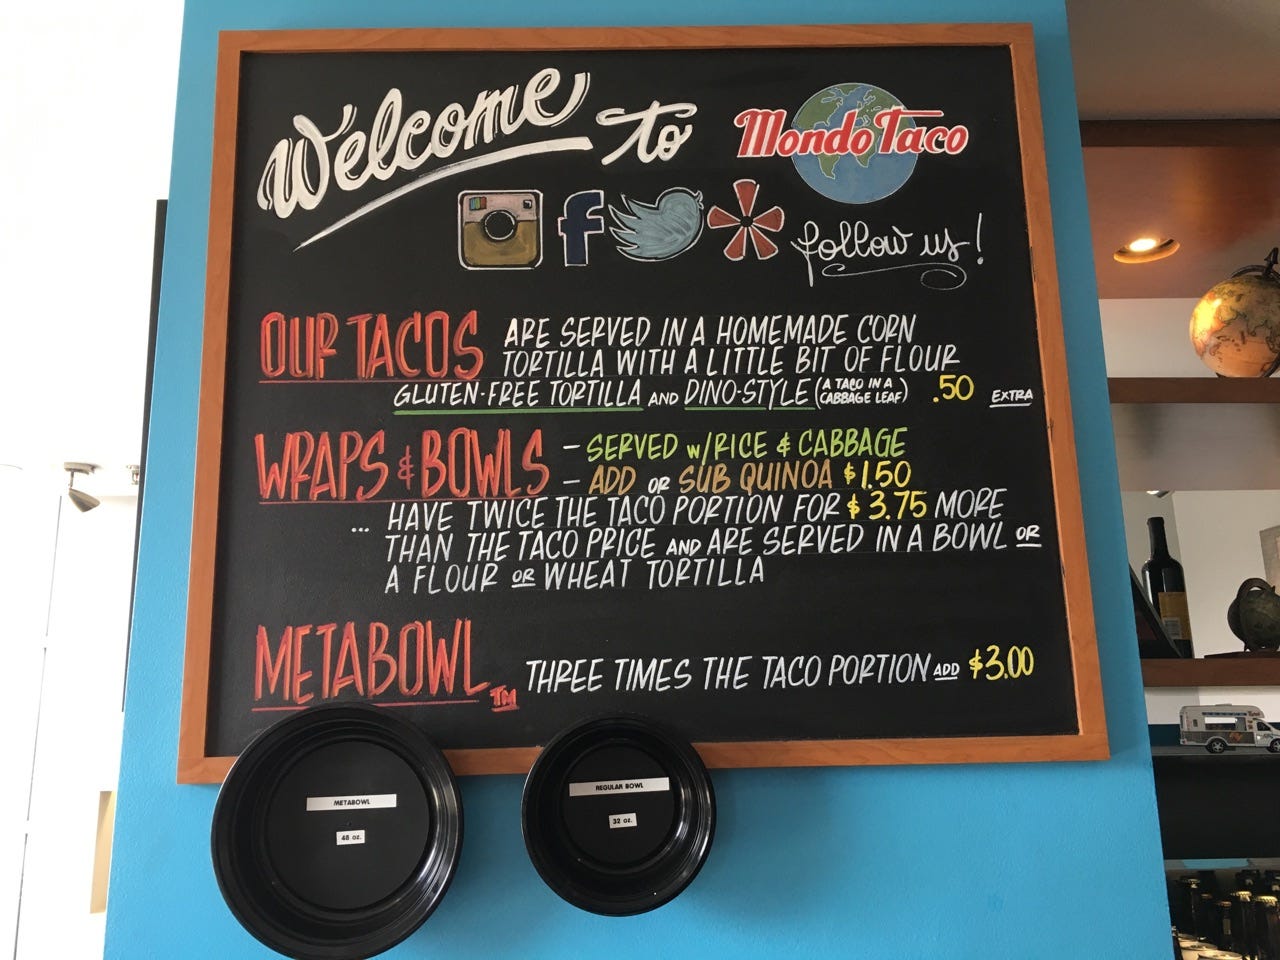 Welcome to Mondo Taco
f follow us!
OUR TACOS ARE SERVED IN A HOMEMADE CORN
TORTILLA WITH A LITTLE BIT OF FLOUR
GLUTEN-FREE TORTILLA AND DINO-STYLE (A TACO IN A CABBAGE LEAF) .50 EXTRA
WRAPS & BOWLS – SERVED w/RICE & CABBAGE
– ADD OR SUB QUINOA $1.50
... HAVE TWICE THE TACO PORTION FOR $3.75 MORE
THAN THE TACO PRICE AND ARE SERVED IN A BOWL OR
A FLOUR OR WHEAT TORTILLA
METABOWL TM THREE TIMES THE TACO PORTION ADD $3.00
METABOWL
48 oz.
REGULAR BOWL
32 oz.